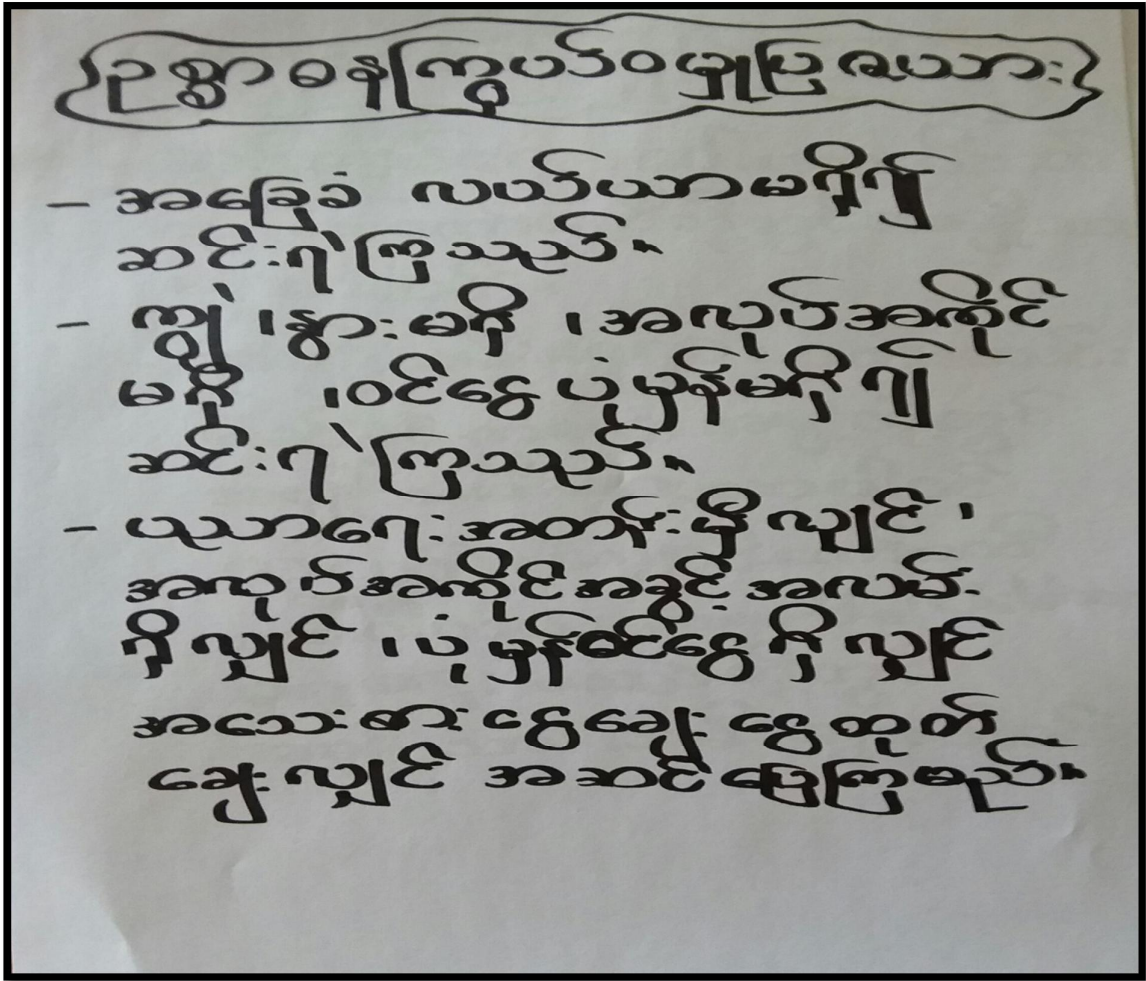 ဥစ္စာဓနကြွယ်ဝမှုပြဇယား
- အခြေခံ လယ်ယာမရှိ၍
ဆင်းရဲကြသည်။
- ကျွဲ ၊နွားမရှိ ၊အလုပ်အကိုင်
မရှိ ၊ဝင်ငွေ ပုံမှန်မရှိ ၍
ဆင်းရဲကြသည်။
- ပညာရေးအတန်းမှီ လျှင် ၊
အလုပ်အကိုင်အခွင့် အလမ်း
ရှိ လျှင် ၊ပုံ မှန်ဝင်ငွေ ရှိ လျှင်
အသေးစား ငွေချေး ငွေထုတ်
ချေး လျှင် အဆင် ပြေကြမည်။